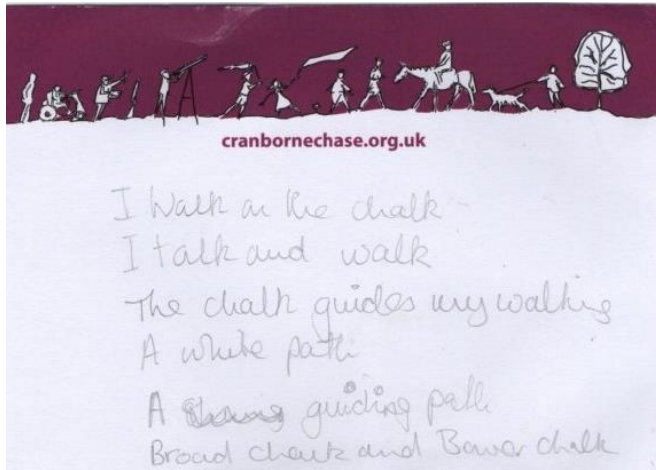 cranbornechase.org.uk
I Walk on the chalk
I talk and walk
The chalk guides my walking
A white path
A guiding path
Broad chalk and Bower chalk